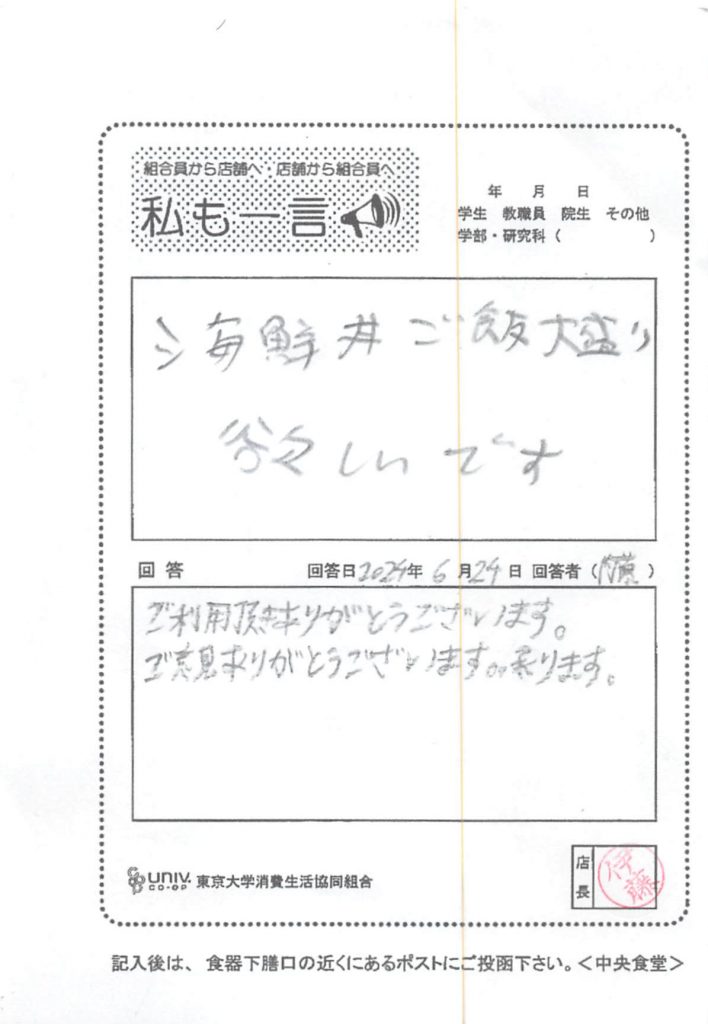 組合員から店舗へ・店舗から組合員へ
私も一言
年 月 日
学生 教職員 院生 その他
学部・研究科( )
海鮮丼ご飯大盛り
欲しいです
回答 回答日2024年6月24日 回答者(内藤)
ご利用頂きありがとうございます。
ご意見ありがとうございます。承ります。
UNIV. CO-OP 東京大学消費生活協同組合
店長 伊藤
記入後は、食器下膳口の近くにあるポストにご投函下さい。<中央食堂>